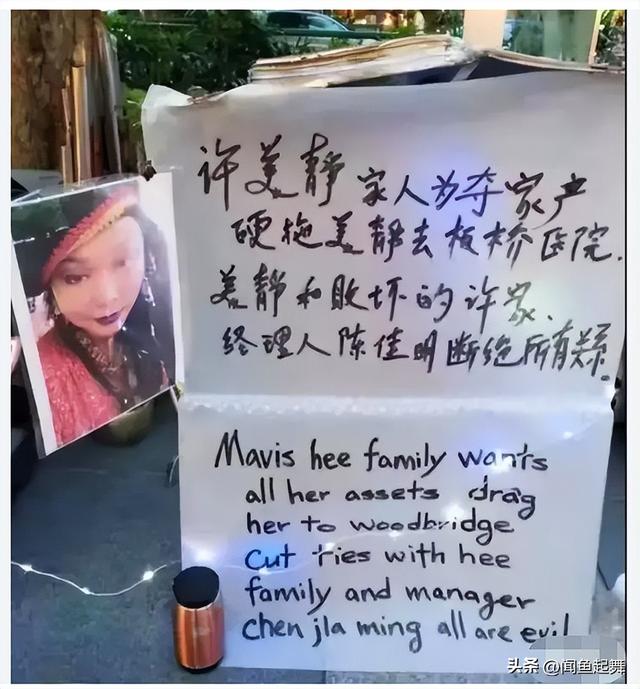 许美静家人为夺家产
硬拖美静去板桥医院.
美静和败坏的许家、
经理人陈佳明断绝所有关系.
Mavis hee family wants
all her assets drag
her to woodbridge
cut ties with hee
family and manager
chen jia ming all are evil
头条 @闻鱼起舞